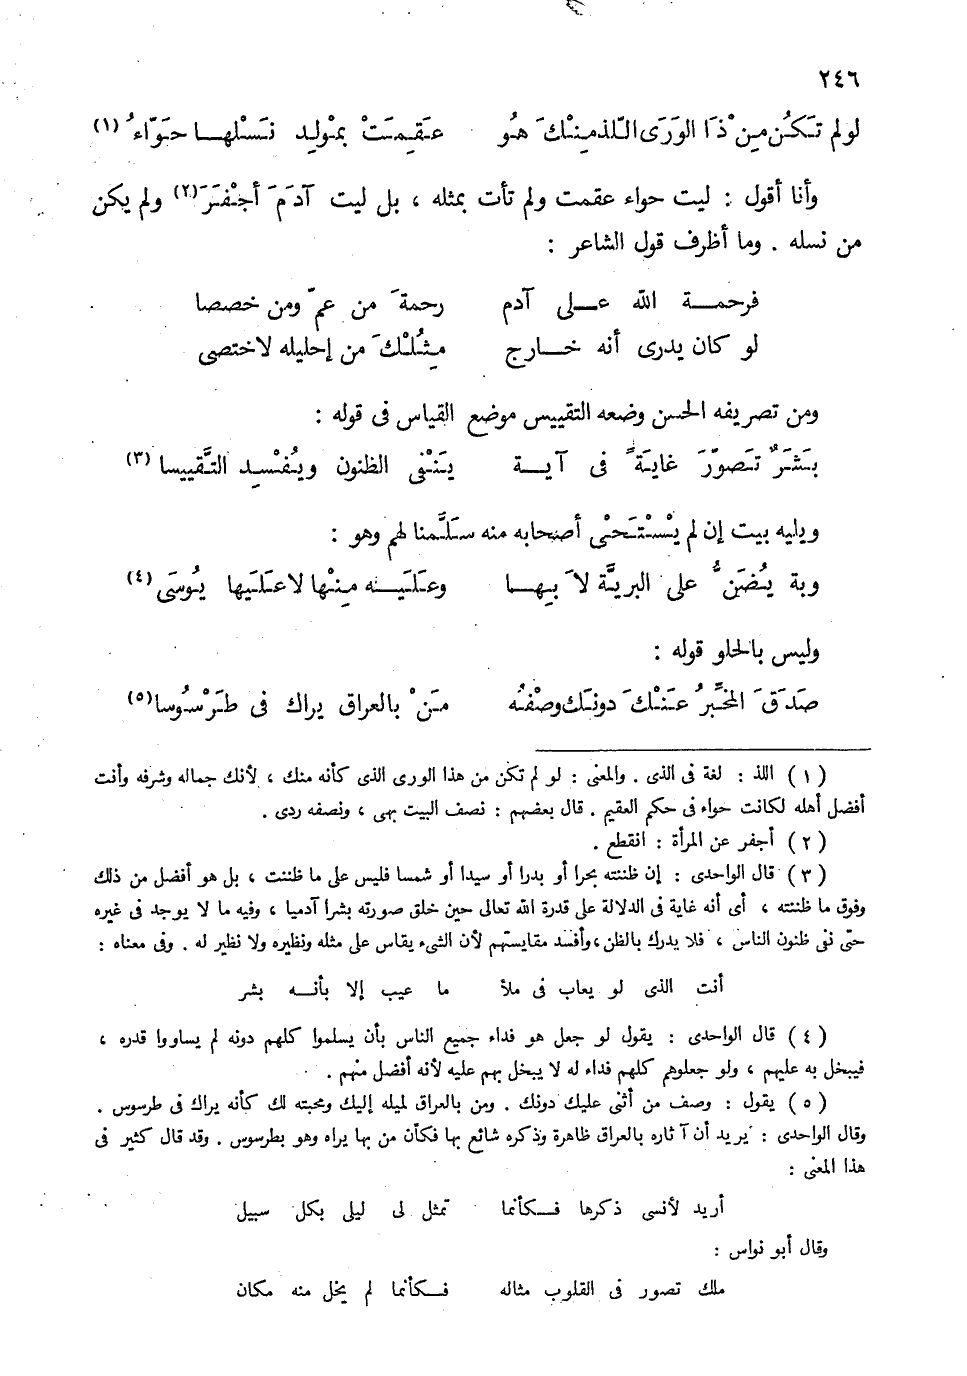 ٢٤٦
لولم تَكُن مِنْ ذَا الوَرَى اللّذ مِنْكَ هُو عَقِمَتْ بمْولِد نَسْلِها حَوّاءُ (١)
وأنا أقول : ليت حواء عقمت ولم تأت بمثله ، بل ليت آدَمَ أجْفَرَ (٢) ولم يكن
من نسله . وما أظرف قول الشاعر :
فرحمة الله على آدم رحمةَ من عمّ ومن خصصا
لو كان يدرى أنه خارج مِثُلْكَ من إحليله لاختصى
ومن تصريفه الحسن وضعه التقييس موضع القياس فى قوله :
بَشَرٌ تَصوّرَ غايَةً فى آية يَنْفِى الظنون ويُفْسِد التَّقييسا (٣)
ويليه بيت إن لم يْسْتَحْى أصحابه منه سَلَّمنا لهم وهو :
وبة يُضَنّ ُ على البريَّة لاَ بِها وعَلَيه مِنْها لا عَلَيها يُوسَى (٤)
وليس بالحلو قوله :
صَدَقَ المخَّبِرُ عَنْكَ دونَك وصْفُه مَنْ بالعراق يراك فى طَرْسُوسا (٥)
(١) اللذ : لغة فى الذى . والمعنى : لو لم تكن من هذا الورى الذى كأنه منك ، لأنك جماله وشرفه وأنت
أفضل أهله لكانت حواء فى حكم العقيم . قال بعضهم : نصف البيت بهى ، ونصفه ردى .
(٢) أجفر عن المرأة : انقطع .
(٣) قال الواحدى : إن ظننته بحرا أو بدرا أو سيدا أو شمسا فليس على ما ظننت ، بل هو أفضل من ذلك
وفوق ما ظننته ، أى أنه غاية فى الدلالة على قدرة الله تعالى حين خلق صورته بشرا آدميا ، وفيه ما لا يوجد فى غيره
حتى نفى ظنون الناس ، فلا يدرك بالظن ، وأفسد مقايستهم لأن الشىء يقاس على مثله ونظيره ولا نظير له . وفى معناه :
أنت الذى لو يعاب فى ملأ ما عيب إلا بأنه بشر
(٤) قال الواحدى : يقول لو جعل هو فداء جميع الناس بأن يسلموا كلهم دونه لم يساووا قدره ،
فيبخل به عليهم ، ولو جعلوهم كلهم فداء له لا يبخل بهم عليه لأنه أفضل منهم .
(٥) يقول : وصف من أثنى عليك دونك . ومن بالعراق لميله إليك ومحبته لك كأنه يراك فى طرسوس .
وقال الواحدى : يريد أن آثاره بالعراق ظاهرة وذكره شائع بها فكأن من بها يراه وهو بطرسوس . وقد قال كثير فى
هذا المعنى :
أريد لأنسى ذكرها فكأنما تمثل لى ليلى بكل سبيل
وقال أبو نواس :
ملك تصور فى القلوب مثاله فكأنما لم يخل منه مكان